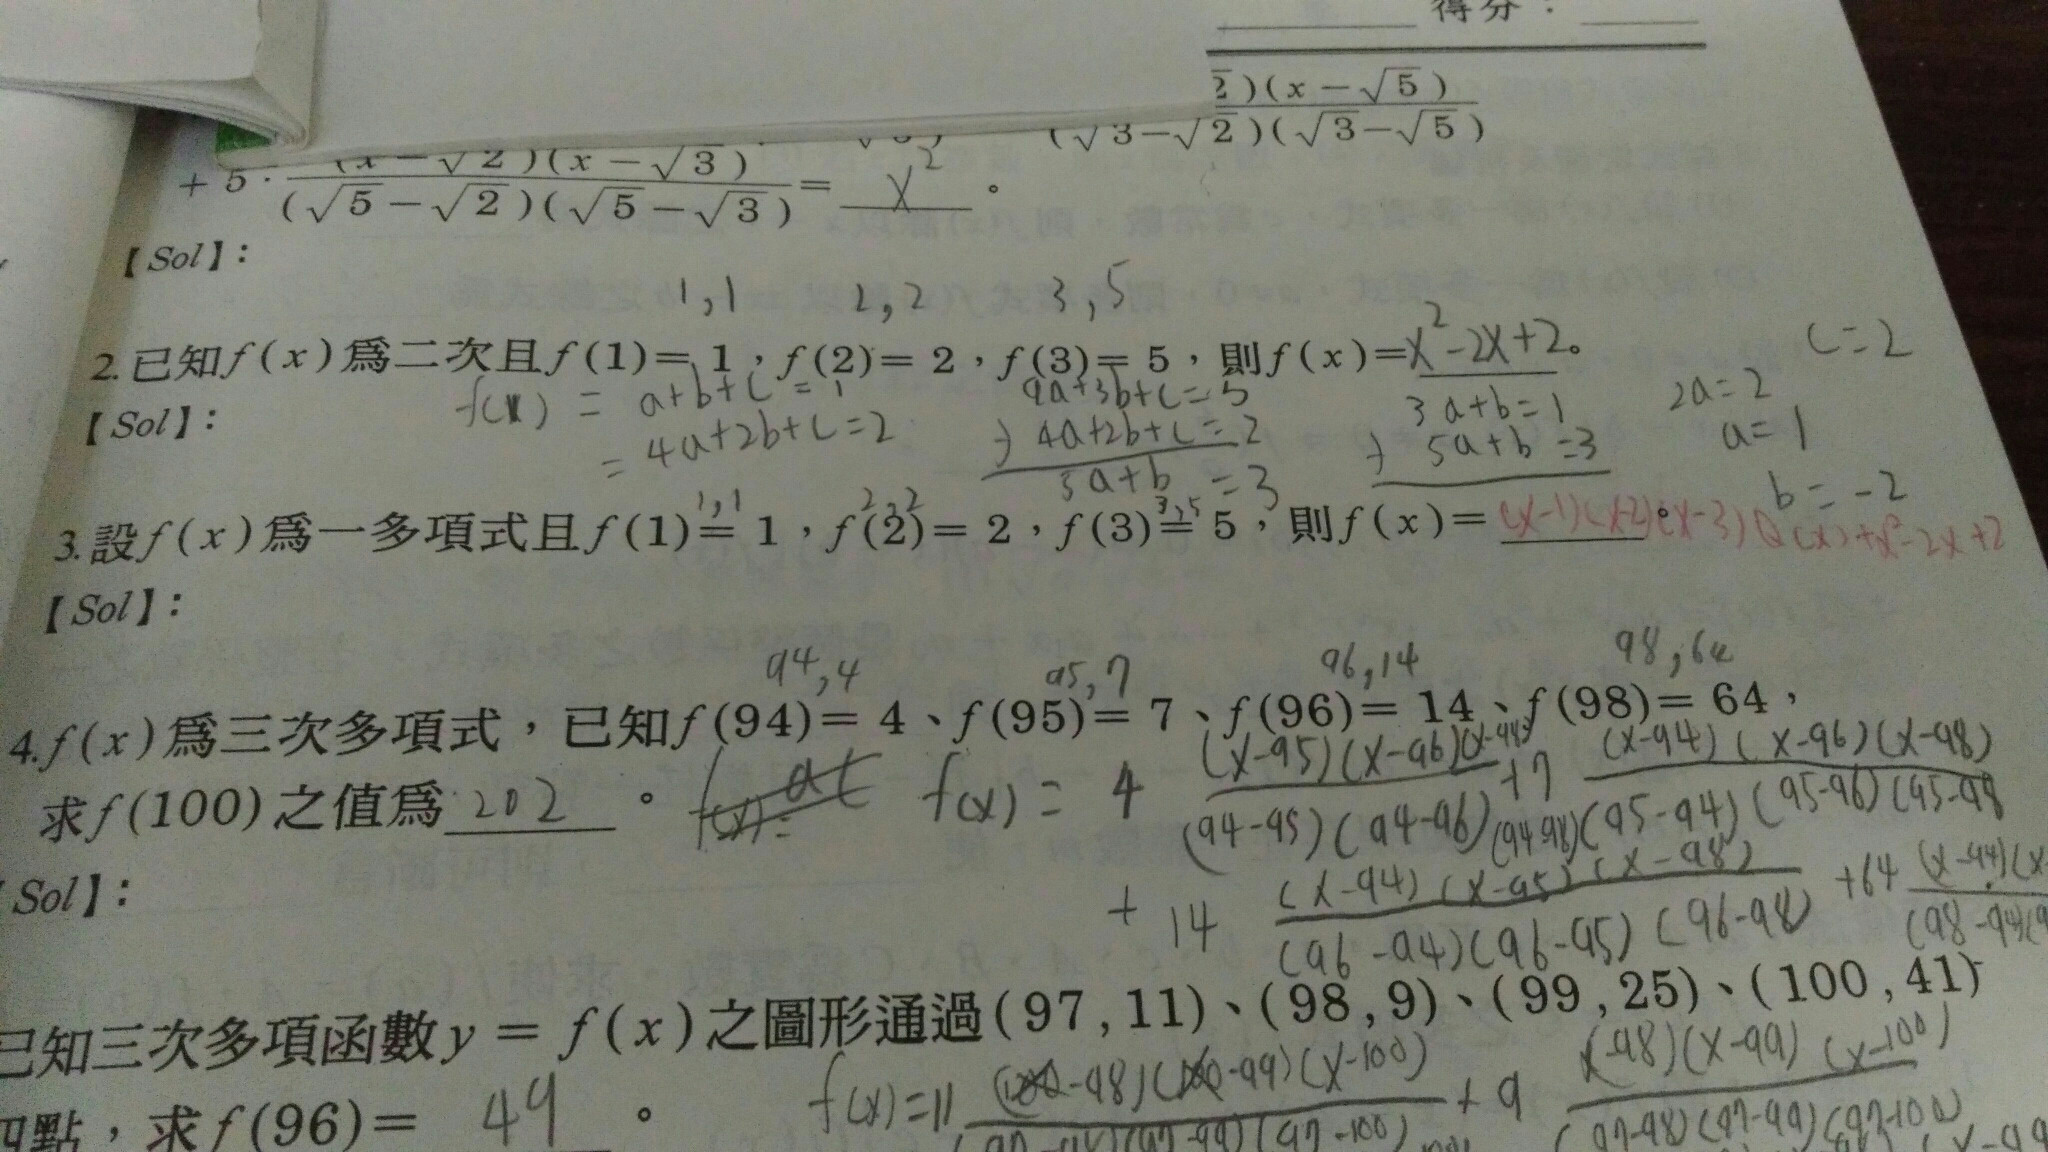 得分：
2)(x－√5)
(√3－√2)(√3－√5)
＋5·(x－√2)(x－√3)/(√5－√2)(√5－√3)＝ x² 。
【Sol】：
1,1 2,2 3,5
2.已知f(x)爲二次且f(1)＝1，f(2)＝2，f(3)＝5，則f(x)＝x²-2x+2。
c=2
【Sol】：
f(x) = a+b+c=1
= 4a+2b+c=2
9a+3b+c=5
-) 4a+2b+c=2
5a+b =3
3a+b=1
-) 5a+b=3
2a=2
a=1
b=-2
1,1 2,2 3,5
3.設f(x)爲一多項式且f(1)＝1，f(2)＝2，f(3)＝5，則f(x)＝(x-1)(x-2)(x-3)Q(x)+x²-2x+2。
【Sol】：
94,4 95,7 96,14 98,64
4.f(x)爲三次多項式，已知f(94)＝4、f(95)＝7、f(96)＝14、f(98)＝64，
求f(100)之值爲202。
f(x) = 4 (x-95)(x-96)(x-98)/(94-95)(94-96)(94-98) +7 (x-94)(x-96)(x-98)/(95-94)(95-96)(95-98
Sol】：
+ 14 (x-94)(x-95)(x-98)/(96-94)(96-95)(96-98) +64 (x-94)(x-/(98-94)(9
已知三次多項函數y＝f(x)之圖形通過(97,11)、(98,9)、(99,25)、(100,41)
四點，求f(96)＝49。
f(x)=11 -98)( -99)(x-100)/(97-98)(97-99)(97-100) +9 x-98)(x-99)(x-100)/(97-98)(97-99)(97-100)